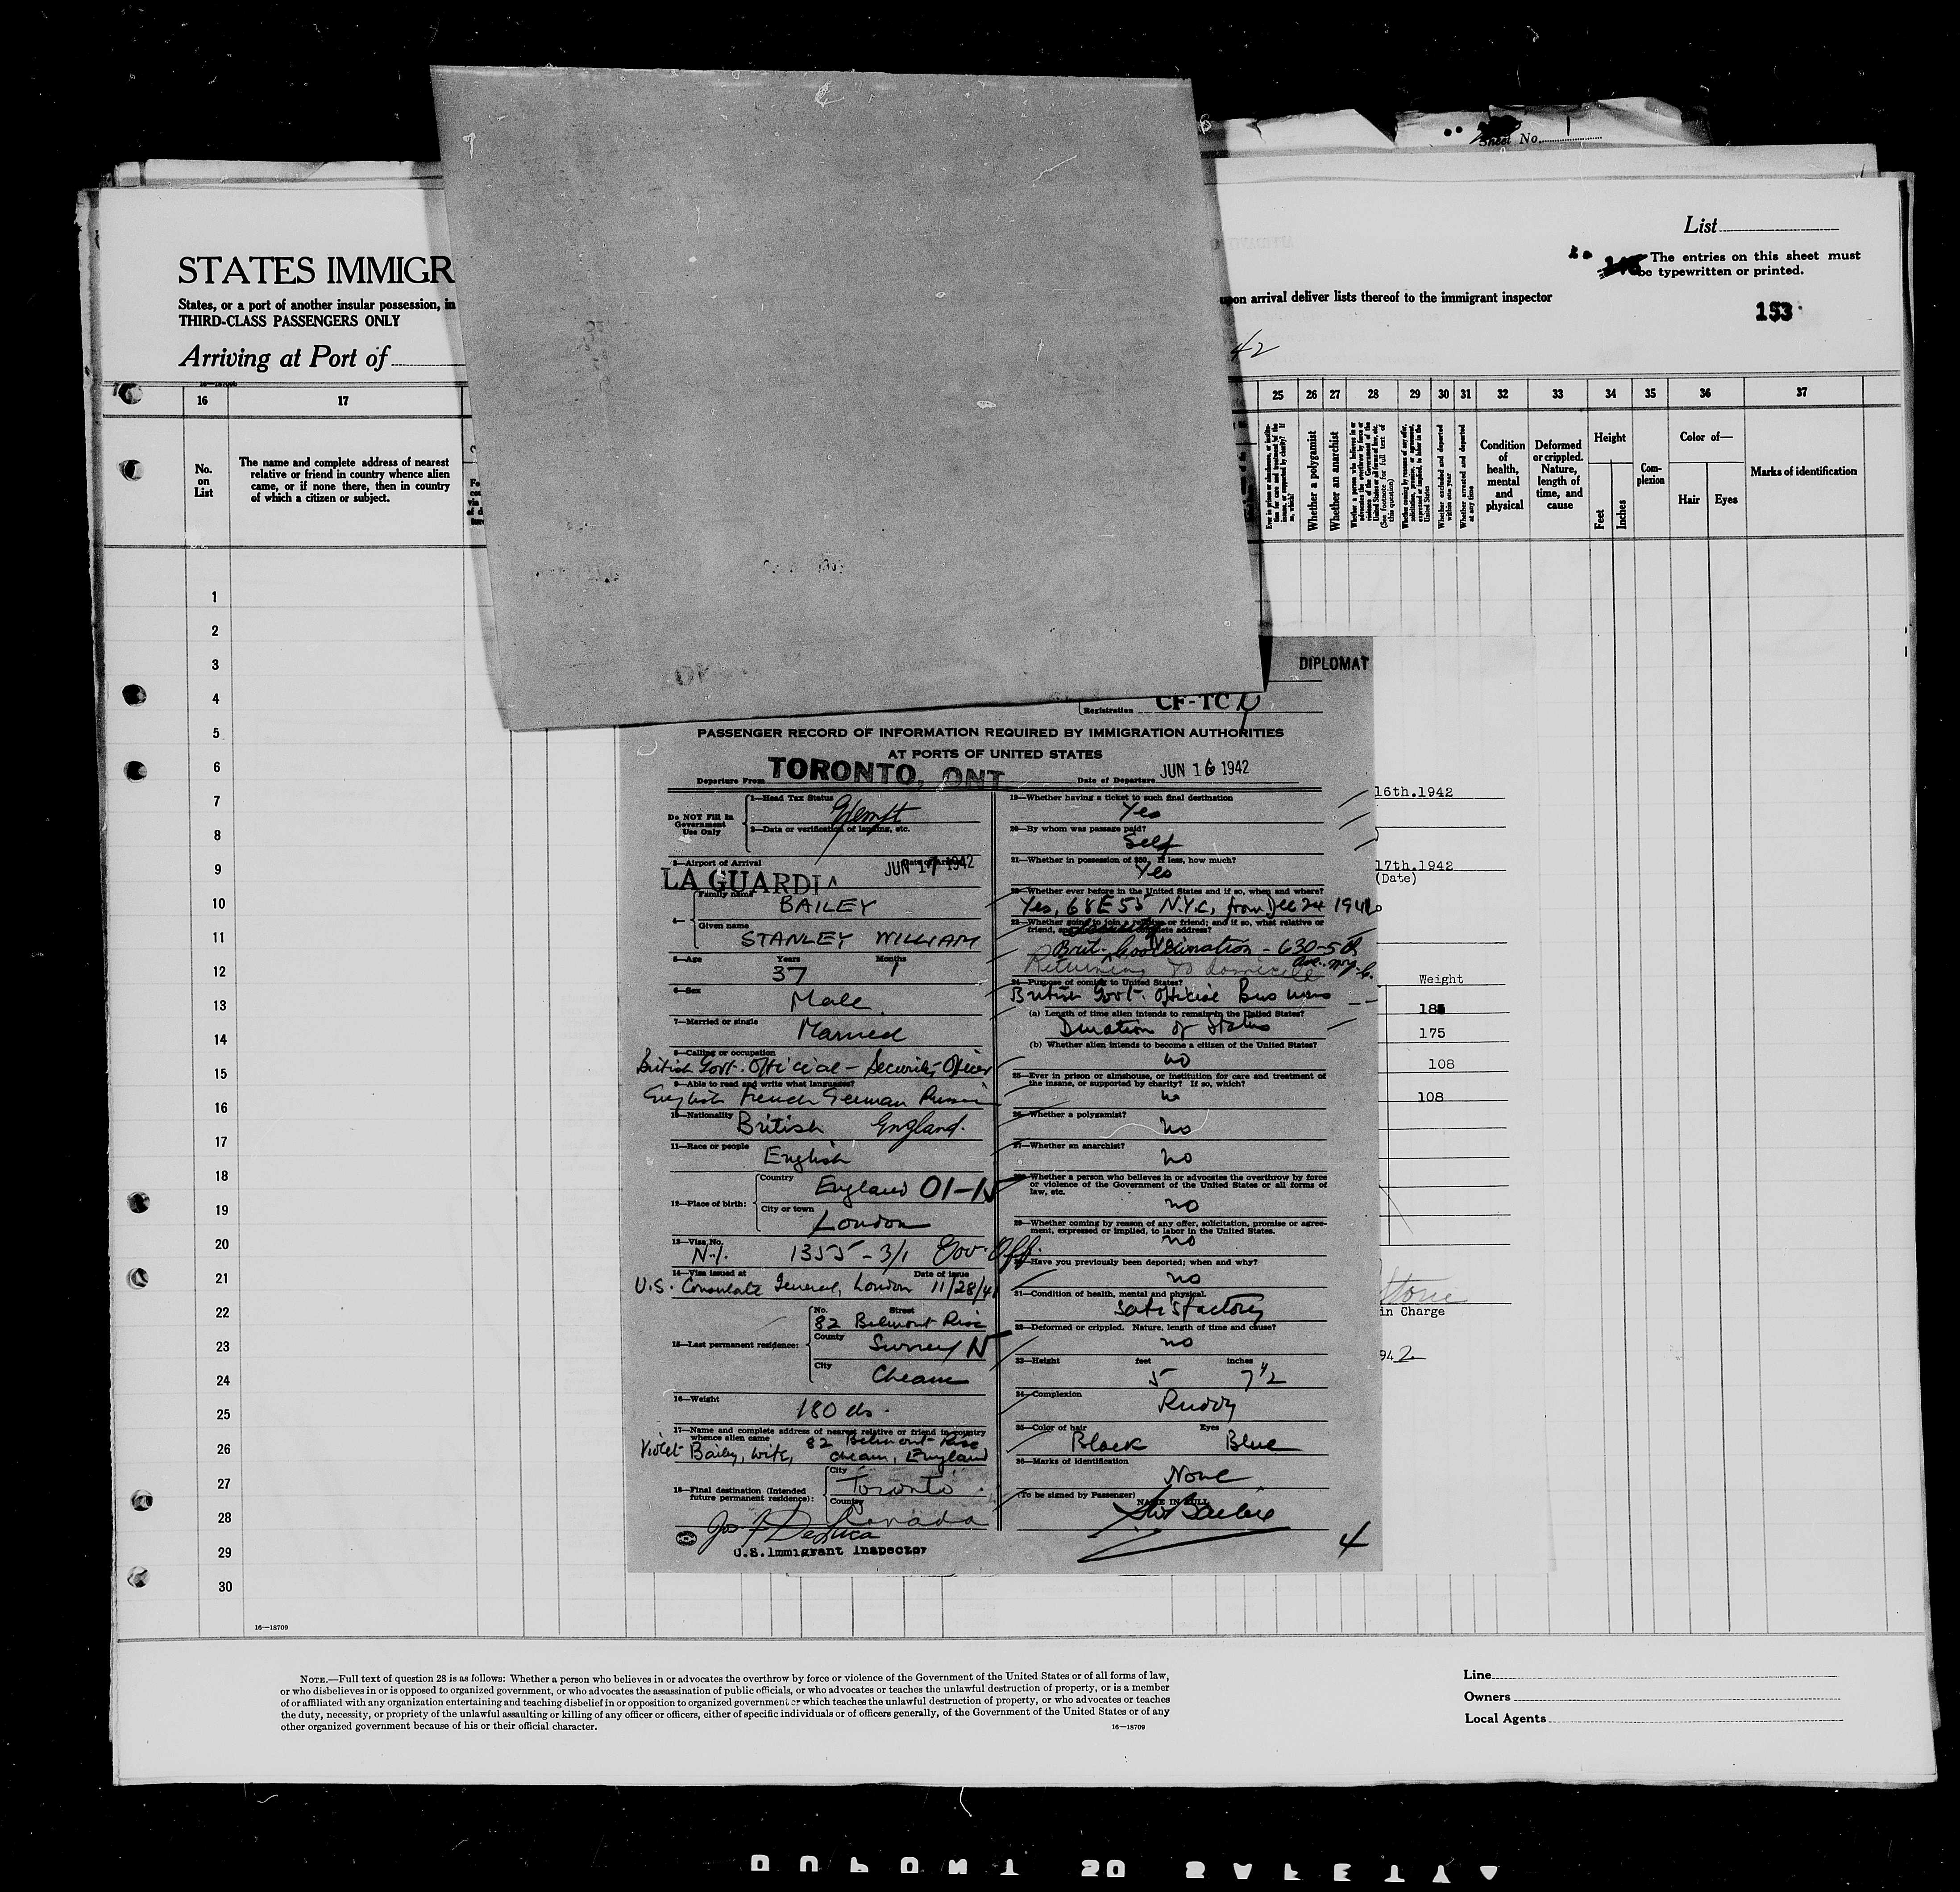 Sheet No. 1
List
The entries on this sheet must
be typewritten or printed.
153
STATES IMMIGR
States, or a port of another insular possession, in
upon arrival deliver lists thereof to the immigrant inspector
THIRD-CLASS PASSENGERS ONLY
Arriving at Port of
42
16 17 25 26 27 28 29 30 31 32 33 34 35 36 37
No. on List
The name and complete address of nearest
relative or friend in country whence alien
came, or if none there, then in country
of which a citizen or subject.
Whether a polygamist
Whether an anarchist
Whether excluded and deported within one year
Whether arrested and deported at any time
Condition of health, mental and physical
Deformed or crippled. Nature, length of time, and cause
Height
Feet
Inches
Com-plexion
Color of—
Hair
Eyes
Marks of identification
1
2
3
4
5
6
7
8
9
10
11
12
13
14
15
16
17
18
19
20
21
22
23
24
25
26
27
28
29
30
16—18709
DIPLOMAT
Registration CF-TC
PASSENGER RECORD OF INFORMATION REQUIRED BY IMMIGRATION AUTHORITIES
AT PORTS OF UNITED STATES
Departure From TORONTO, ONT
Date of Departure JUN 16 1942
Do NOT Fill In
Government
Use Only
1—Head Tax Status
2—Data or verification of landing, etc.
3—Airport of Arrival
LA GUARDIA
Date of Arrival JUN 17 1942
4—
Family name
BAILEY
Given name
STANLEY WILLIAM
5—Age Years Months
37 1
6—Sex
Male
7—Married or single
Married
8—Calling or occupation
British Govt. Official - Security Officer
9—Able to read and write what languages?
English French German Russian
10—Nationality
British England.
11—Race or people
English
12—Place of birth:
Country
England 01-N
City or town
London
13—Visa No.
1355-3/1 Gov. Off.
14—Visa issued at Date of issue
U.S. Consulate General, London 11/28/41
15—Last permanent residence:
No. Street
82 Belmont Rise
County
Surrey N
City
Cheam
16—Weight
180 lbs.
17—Name and complete address of nearest relative or friend in country
whence alien came
82 Belmont Rise
Violet Bailey, wife, Cheam, England
18—Final destination (Intended
future permanent residence):
City
Toronto
Country
Canada
U.S. Immigrant Inspector
19—Whether having a ticket to such final destination
Yes
20—By whom was passage paid?
Self
21—Whether in possession of $50. If less, how much?
Yes
22—Whether ever before in the United States and if so, when and where?
Yes, 68 E 55 N.Y.C, from Dec 24
23—Whether going to join a relative or friend; and if so, what relative or
friend, and complete address?
Brit. Coordination - 630-5th
Ave. N.Y.C.
Returning to domicile
24—Purpose of coming to United States?
British Govt. Official Business
(a) Length of time alien intends to remain in the United States?
Duration of Status
(b) Whether alien intends to become a citizen of the United States?
no
25—Ever in prison or almshouse, or institution for care and treatment of
the insane, or supported by charity? If so, which?
no
26—Whether a polygamist?
no
27—Whether an anarchist?
no
28—Whether a person who believes in or advocates the overthrow by force
or violence of the Government of the United States or all forms of
law, etc.
no
29—Whether coming by reason of any offer, solicitation, promise or agree-
ment, expressed or implied, to labor in the United States.
no
30—Have you previously been deported; when and why?
no
31—Condition of health, mental and physical.
satisfactory
32—Deformed or crippled. Nature, length of time and cause?
no
33—Height feet inches
5 7 1/2
34—Complexion
Ruddy
35—Color of hair Eyes
Black Blue
36—Marks of identification
None
(To be signed by Passenger)
NAME IN FULL
4
16th.1942
17th.1942
(Date)
Weight
175
108
108
in Charge
942
NOTE.—Full text of question 28 is as follows: Whether a person who believes in or advocates the overthrow by force or violence of the Government of the United States or of all forms of law,
or who disbelieves in or is opposed to organized government, or who advocates the assassination of public officials, or who advocates or teaches the unlawful destruction of property, or is a member
of or affiliated with any organization entertaining and teaching disbelief in or opposition to organized government or which teaches the unlawful destruction of property, or who advocates or teaches
the duty, necessity, or propriety of the unlawful assaulting or killing of any officer or officers, either of specific individuals or of officers generally, of the Government of the United States or of any
other organized government because of his or their official character.
16—18709
Line
Owners
Local Agents